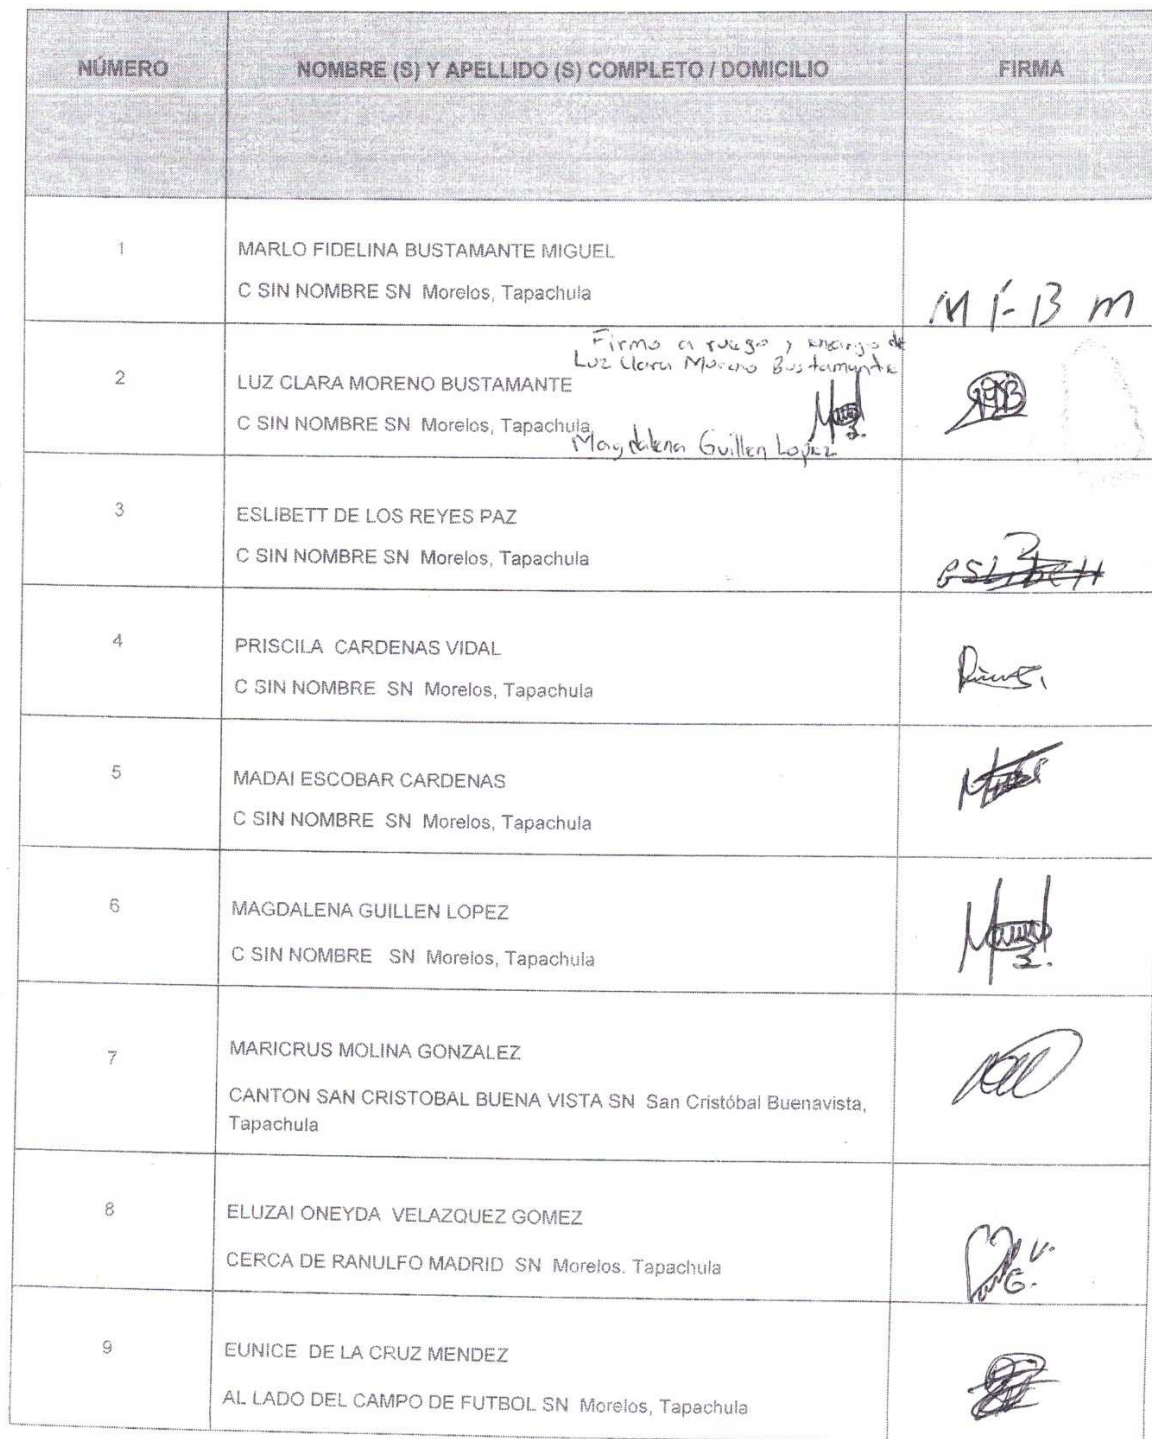 NÚMERO NOMBRE (S) Y APELLIDO (S) COMPLETO / DOMICILIO FIRMA
1 MARLO FIDELINA BUSTAMANTE MIGUEL
C SIN NOMBRE SN Morelos, Tapachula
M F B M
Firmo a ruego y encargo de
Luz Clara Moreno Bustamante
2 LUZ CLARA MORENO BUSTAMANTE
C SIN NOMBRE SN Morelos, Tapachula
Magdalena Guillen Lopez
3 ESLIBETT DE LOS REYES PAZ
C SIN NOMBRE SN Morelos, Tapachula
4 PRISCILA CARDENAS VIDAL
C SIN NOMBRE SN Morelos, Tapachula
5 MADAI ESCOBAR CARDENAS
C SIN NOMBRE SN Morelos, Tapachula
6 MAGDALENA GUILLEN LOPEZ
C SIN NOMBRE SN Morelos, Tapachula
7 MARICRUS MOLINA GONZALEZ
CANTON SAN CRISTOBAL BUENA VISTA SN San Cristóbal Buenavista,
Tapachula
8 ELUZAI ONEYDA VELAZQUEZ GOMEZ
CERCA DE RANULFO MADRID SN Morelos. Tapachula
V.
G.
9 EUNICE DE LA CRUZ MENDEZ
AL LADO DEL CAMPO DE FUTBOL SN Morelos, Tapachula